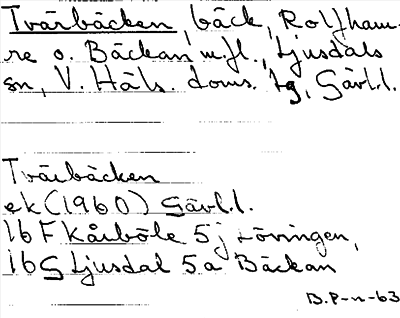 Tvärbäcken, bäck, Rolfham-
re o. Bäckan m.fl., Ljusdals
sn, V. Häls. doms. tg, Gävl.l.
Tvärbäcken
ek (1960) Gävl.l.
16F Kårböle 5j Lövingen,
16G Ljusdal 5a Bäckan
B.P-n-63